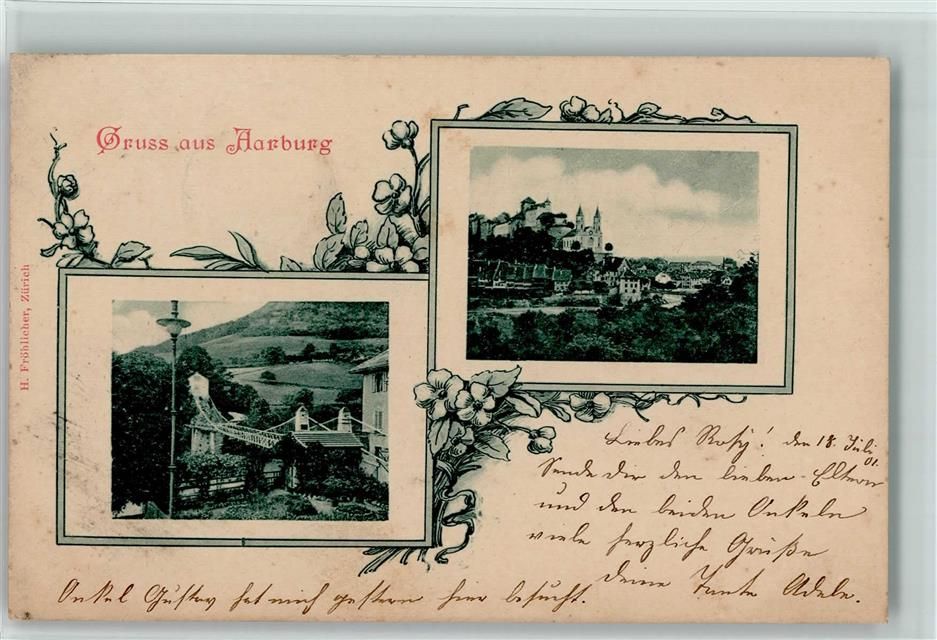 Gruss aus Aarburg
H. Fröhlicher, Zürich
Liebes Rosy! den 18. Juli
01.
Sende dir den lieben Eltern
und den beiden Onkeln
viele herzliche Grüße
deine Tante Adele.
Onkel Gustav hat mich gestern hier besucht.